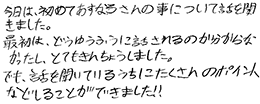 今日は、初めてあすなろさんの事について話を聞
きました。
最初は、どうゆうふうに話されるのか分からな
かったし、とてもきんちょうしました。
でも、話を聞いているうちにたくさんのポイント
などしることができました!!